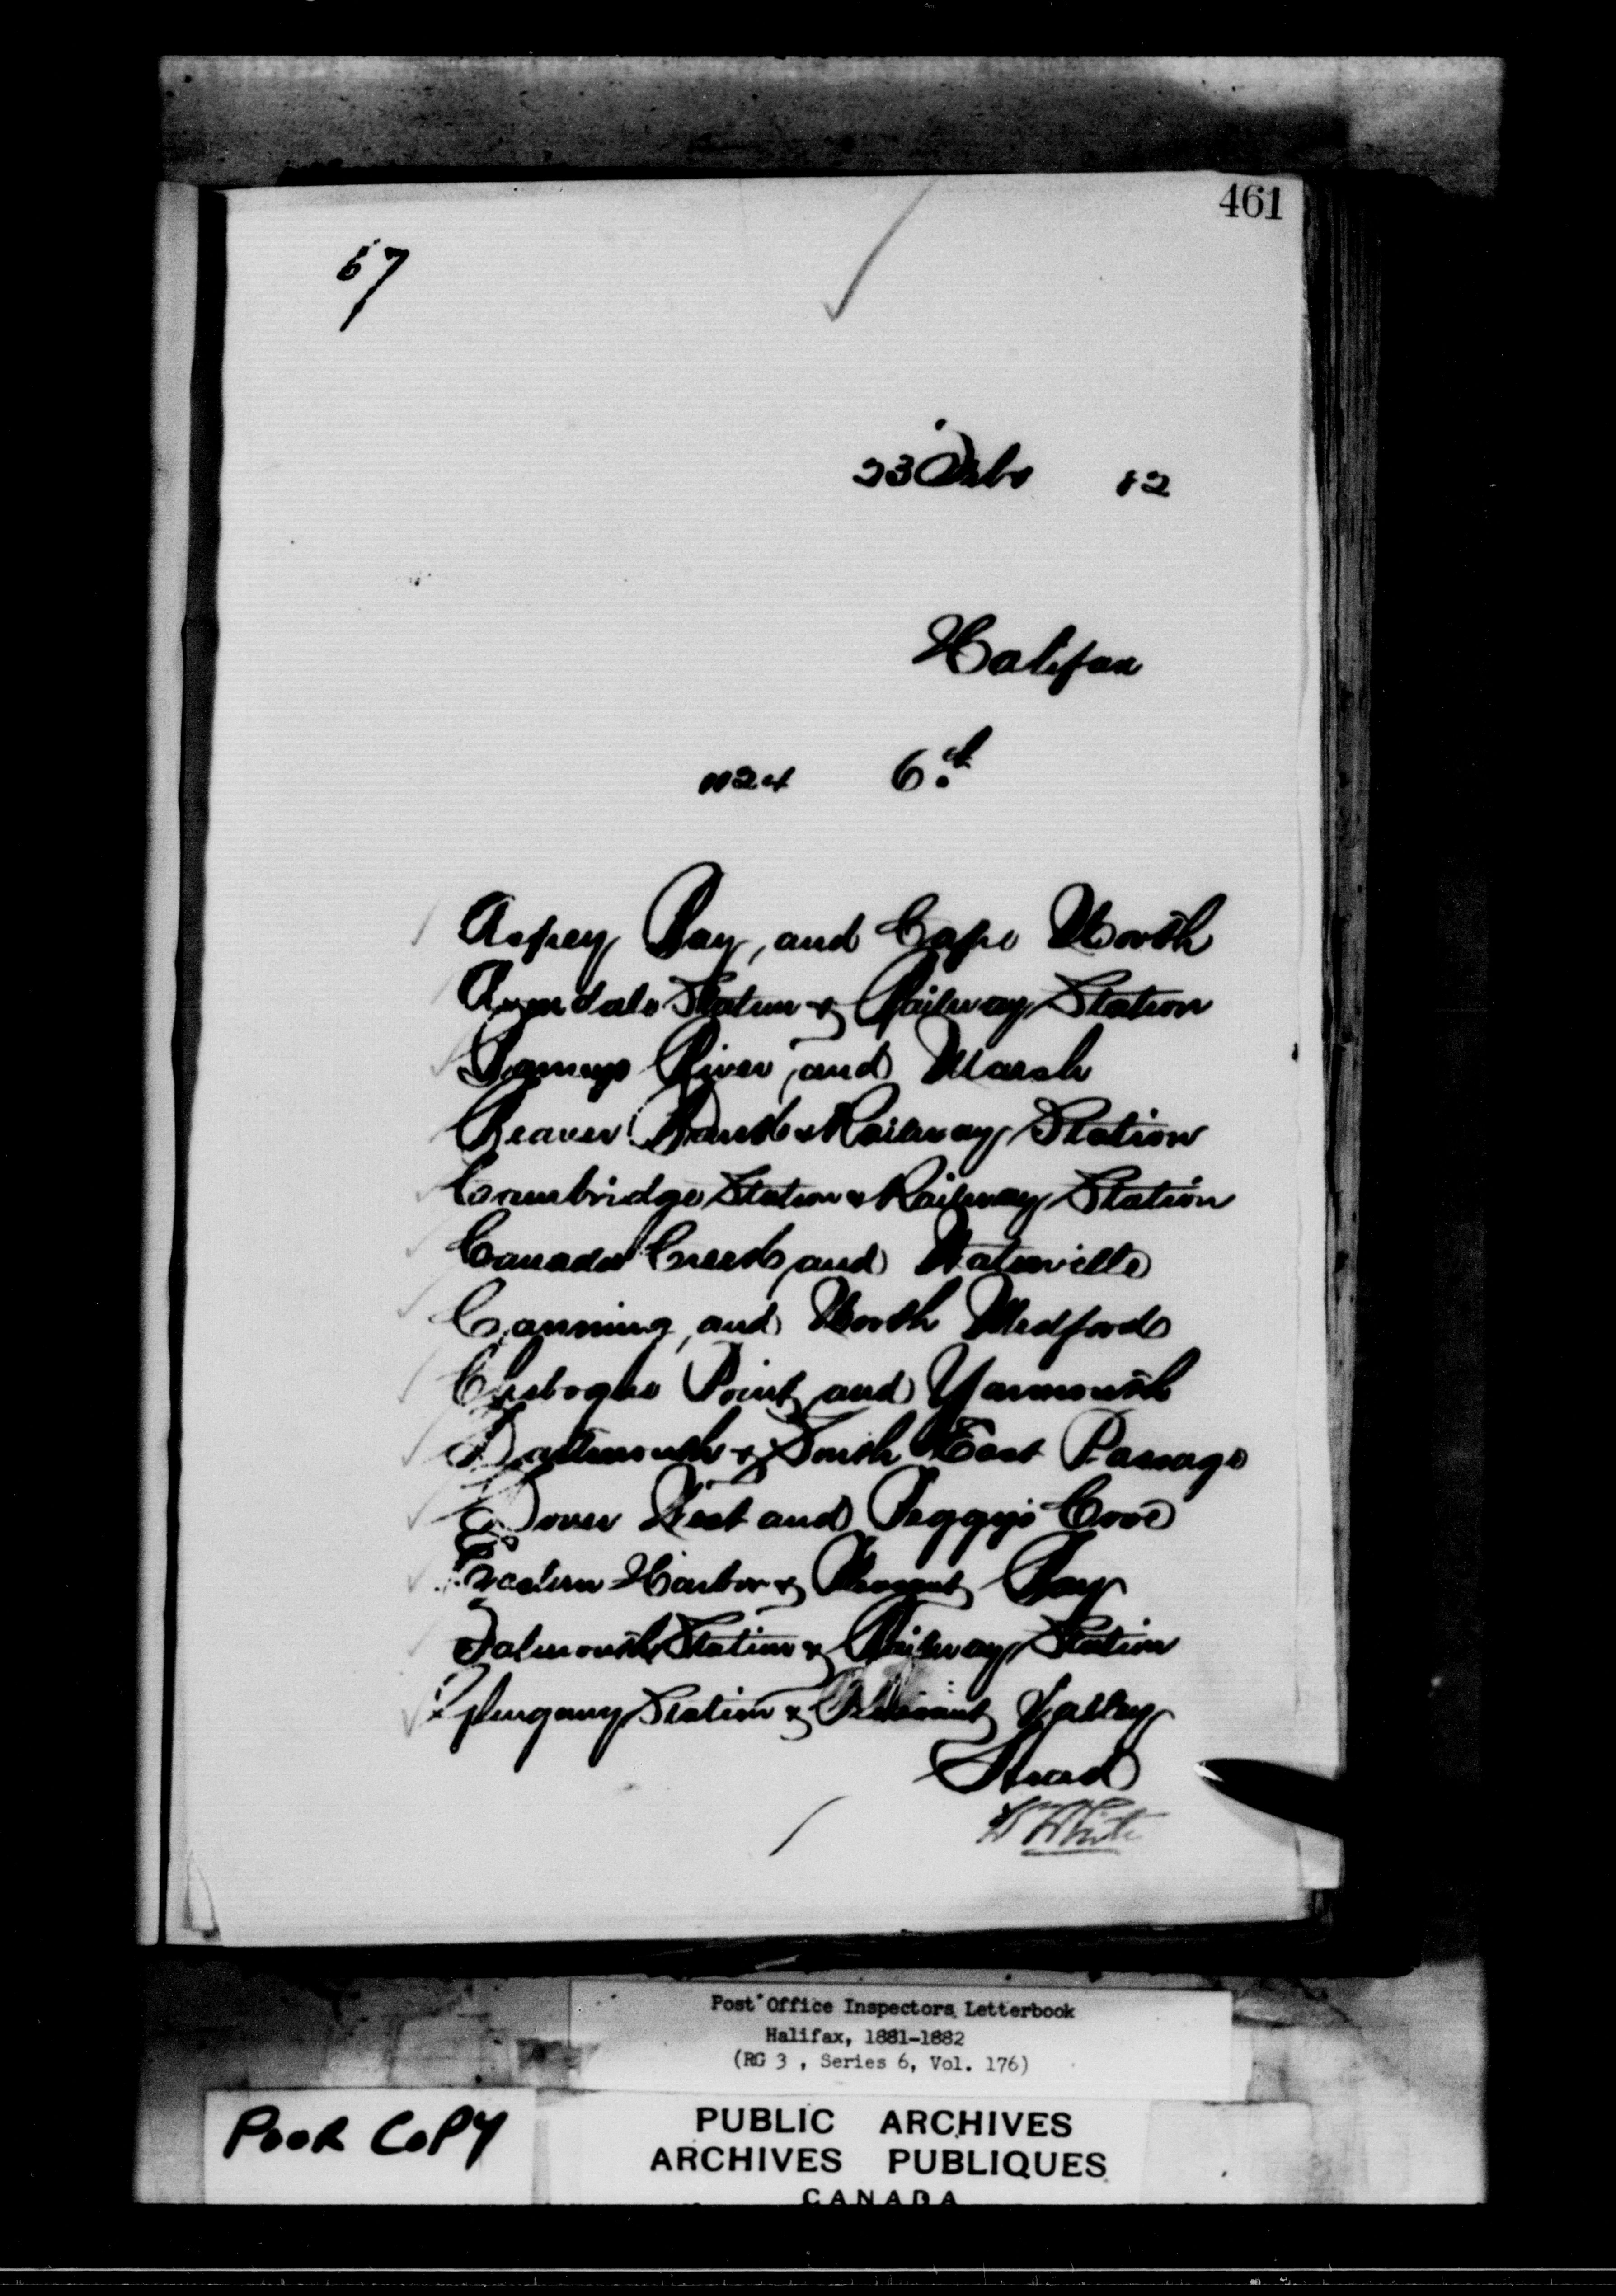 461
57
23 Feby 82
Halifax
1124 6th
Aspey Bay, and Cape North
Avondale Station & Railway Station
Barneys River, and Marsh
Beaver Bank & Railway Station
Cambridge Station & Railway Station
Canada Creek, and Waterville
Canning, and North Medford
Chebogue Point, and Yarmouth
Dartmouth & South East Passage
Dover West and Peggy's Cove
Eastern Harbor & Pleasant Bay
Falmouth Station & Railway Station
Glengarry Station & Pleasant Valley
W White
Post Office Inspectors Letterbook
Halifax, 1881-1882
(RG 3 , Series 6, Vol. 176)
POOR COPY
PUBLIC ARCHIVES
ARCHIVES PUBLIQUES
CANADA